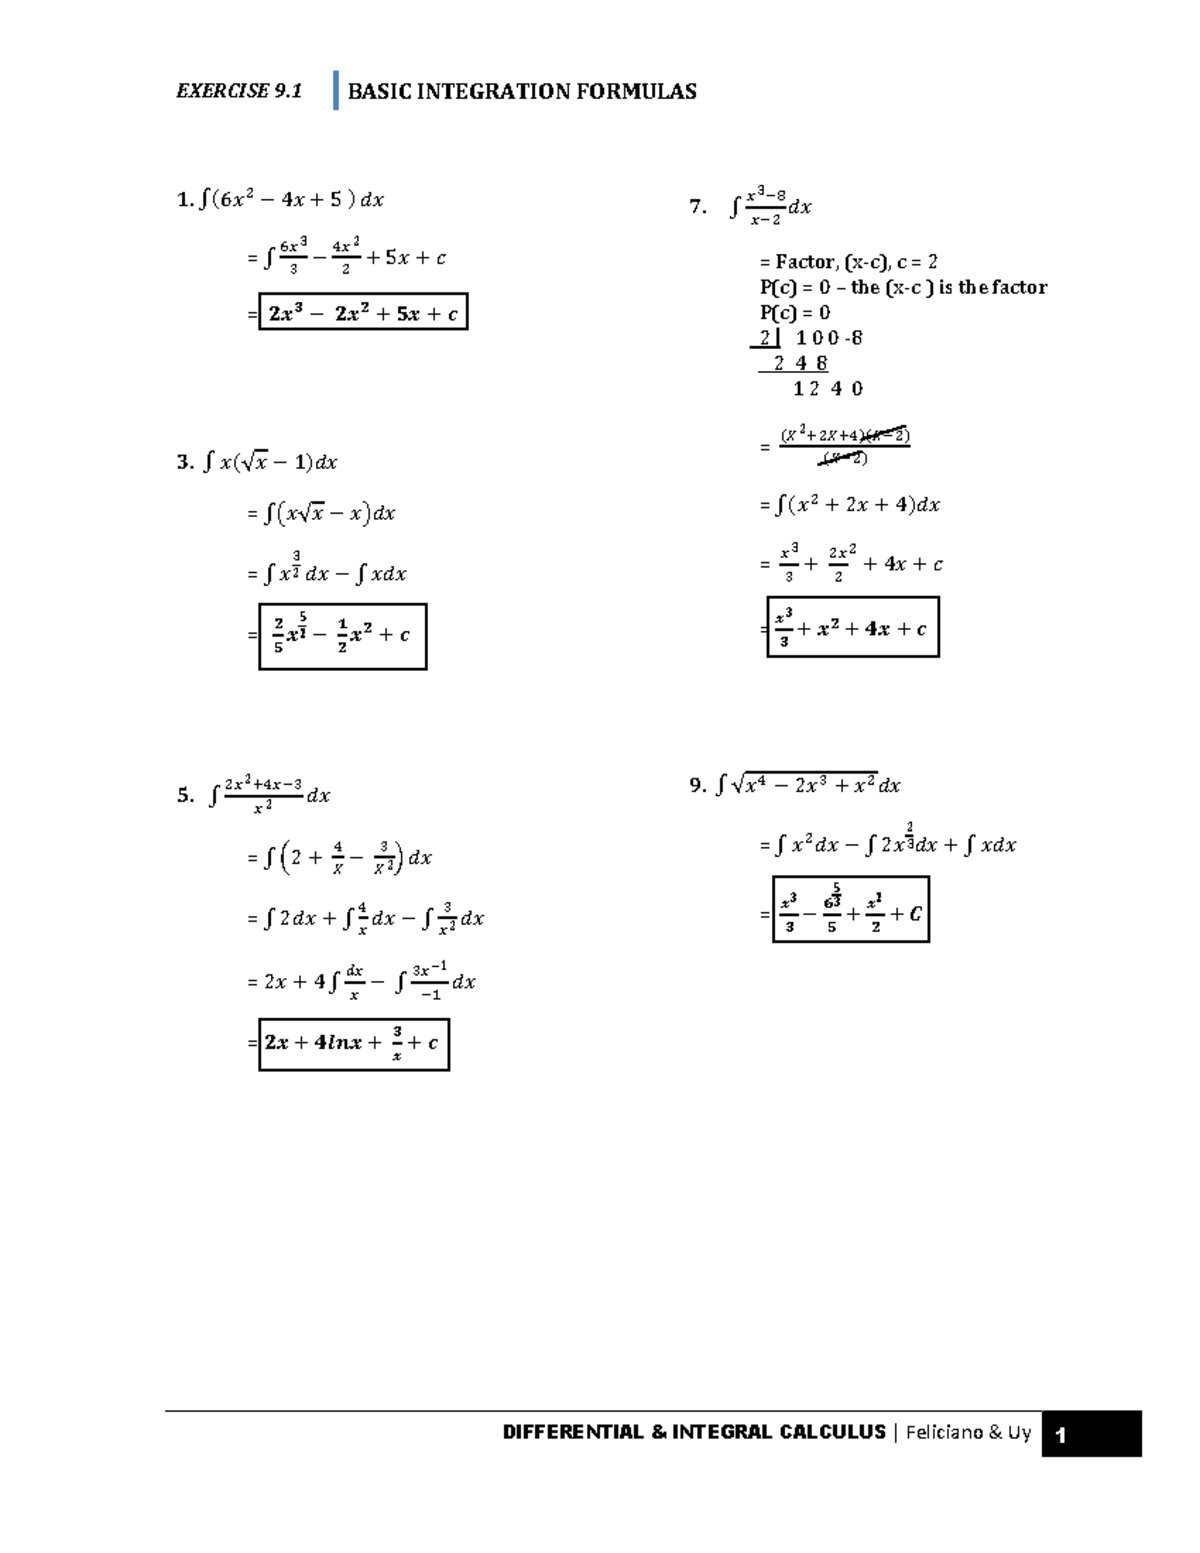 EXERCISE 9.1 BASIC INTEGRATION FORMULAS
1. ∫(6x² − 4x + 5 ) dx
= ∫ 6x³/3 − 4x²/2 + 5x + c
= 2x³ − 2x² + 5x + c
3. ∫ x(√x − 1)dx
= ∫(x√x − x)dx
= ∫ x^(3/2) dx − ∫ xdx
= 2/5 x^(5/2) − 1/2 x² + c
5. ∫ (2x²+4x−3)/x² dx
= ∫(2 + 4/X − 3/X²) dx
= ∫ 2dx + ∫ 4/x dx − ∫ 3/x² dx
= 2x + 4∫ dx/x − ∫ 3x⁻¹/−1 dx
= 2x + 4lnx + 3/x + c
7. ∫ (x³−8)/(x−2) dx
= Factor, (x-c), c = 2
P(c) = 0 – the (x-c ) is the factor
P(c) = 0
2| 1 0 0 -8
2 4 8
1 2 4 0
= (X²+2X+4)(X−2)/(X−2)
= ∫(x² + 2x + 4)dx
= x³/3 + 2x²/2 + 4x + c
= x³/3 + x² + 4x + c
9. ∫ √(x⁴ − 2x³ + x²) dx
= ∫ x²dx − ∫ 2x^(2/3)dx + ∫ xdx
= x³/3 − 6^(5/3)/5 + x²/2 + C
DIFFERENTIAL & INTEGRAL CALCULUS | Feliciano & Uy 1